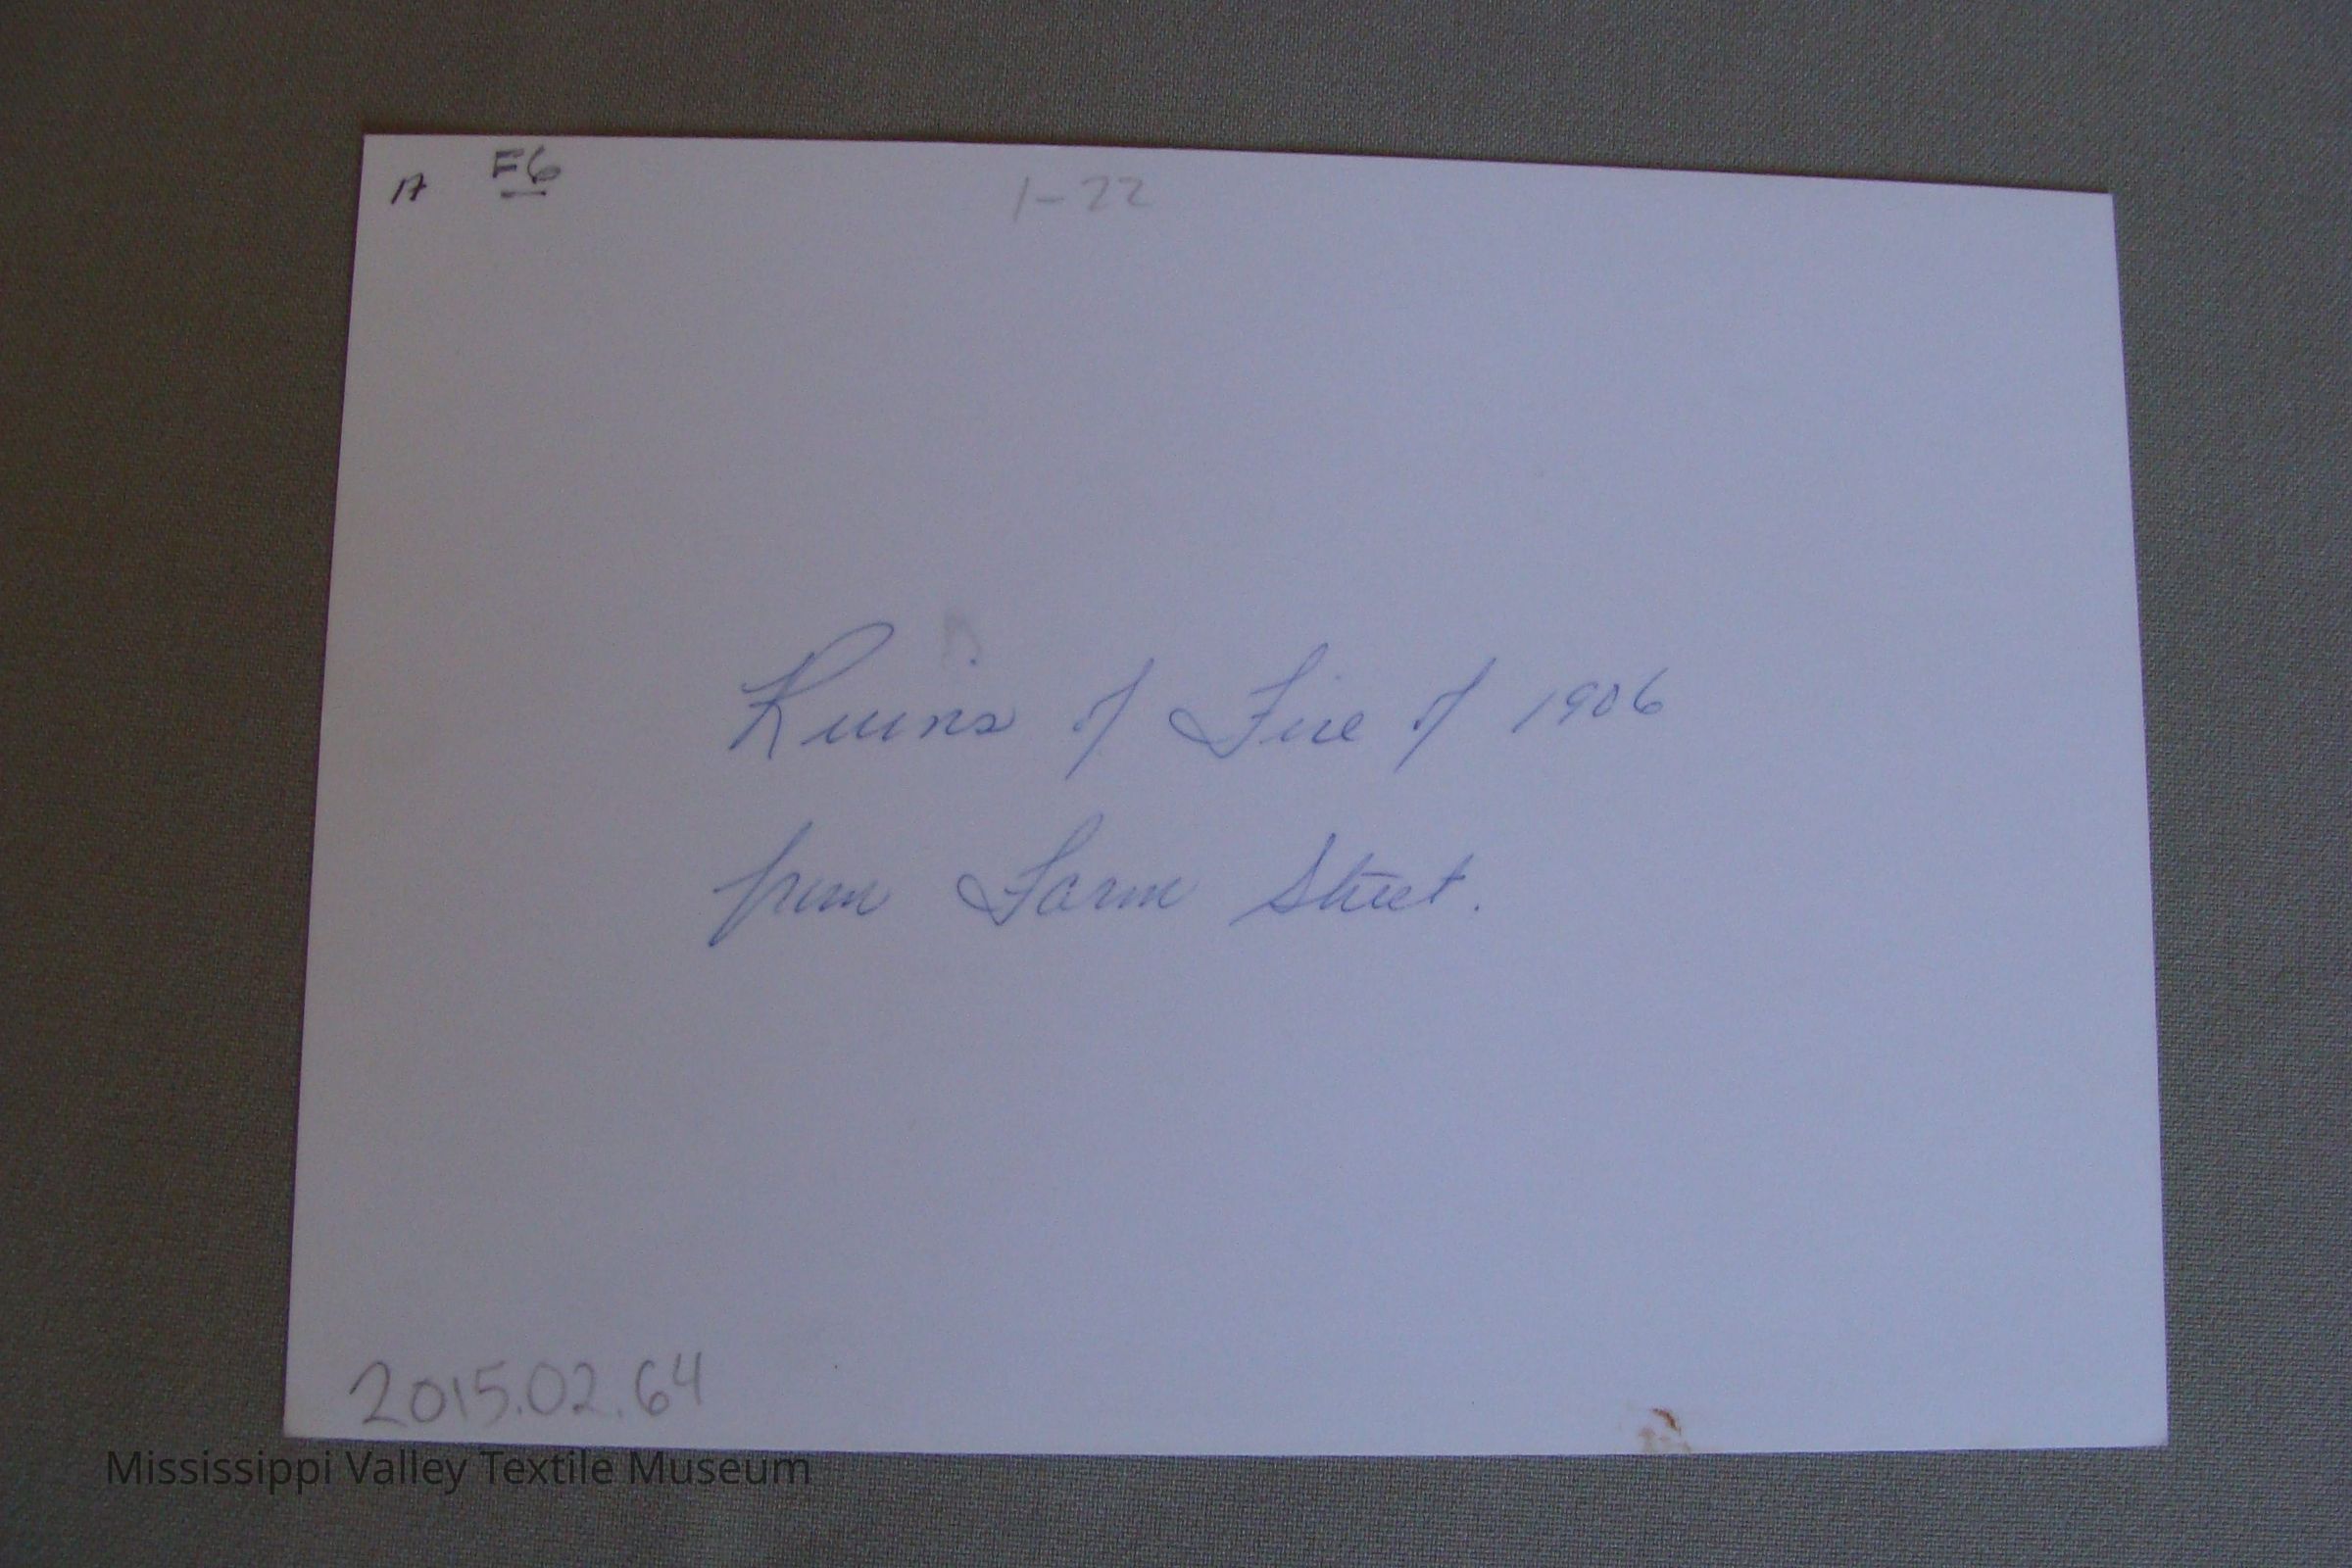 17 F6 1-22
Ruins of Fire of 1906
from Farm Street.
2015.02.64
Mississippi Valley Textile Museum